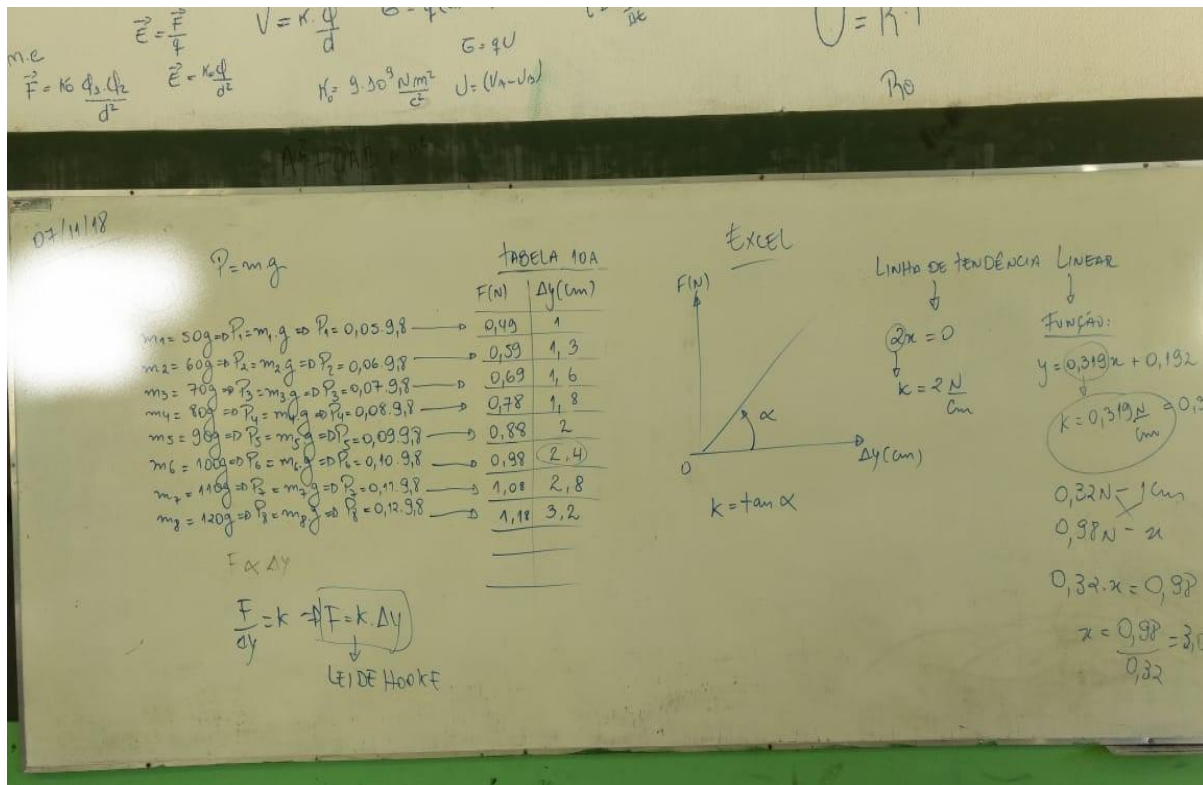 m.e
E = F/q
V = K.φ/d
G = q
Δt
U = K.i
F = Ko φ1.φ2/d²
E = Koφ/d²
G = qU
Ko = 9.10⁹ Nm²/c²
U = (VA-VB)
Ro
07/11/18
P = m.g
m1 = 50g ⇒ P1 = m1.g ⇒ P1 = 0,05.9,8
m2 = 60g ⇒ P2 = m2g ⇒ P2 = 0,06.9,8
m3 = 70g ⇒ P3 = m3g ⇒ P3 = 0,07.9,8
m4 = 80g ⇒ P4 = m4.g ⇒ P4 = 0,08.9,8
m5 = 90g ⇒ P5 = m5g ⇒ P5 = 0,09.9,8
m6 = 100g ⇒ P6 = m6.g ⇒ P6 = 0,10.9,8
m7 = 110g ⇒ P7 = m7g ⇒ P7 = 0,11.9,8
m8 = 120g ⇒ P8 = m8.g ⇒ P8 = 0,12.9,8
F ∝ Δy
F/Δy = k ⇒ F = k.Δy
LEI DE HOOKE
TABELA 10A
F(N) Δy(cm)
0,49 1
0,59 1,3
0,69 1,6
0,78 1,8
0,88 2
0,98 2,4
1,08 2,8
1,18 3,2
EXCEL
F(N)
α
0
Δy(cm)
k = tan α
LINHA DE TENDÊNCIA LINEAR
2x = 0
k = 2 N/cm
FUNÇÃO:
y = 0,319x + 0,192
k = 0,319 N/cm = 0,3
0,32N - 1cm
0,98N - x
0,32.x = 0,98
x = 0,98/0,32 = 3,0